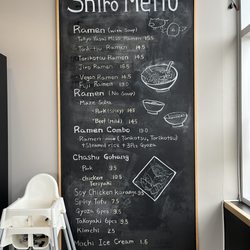 Shiro Menu
Ramen (with Soup)
Tokyo Yasai Miso Ramen 14.5
Tonkotsu Ramen 14.5
Torikotsu Ramen 14.5
Jiro Ramen 14.5
Vegan Ramen 14.5
Fuji Ramen
Ramen (No Soup)
Maze Soba
Pork (Spicy) 14.5
Beef (Mild) 14.5
Ramen Combo
Ramen (Tonkotsu, Torikotsu)
+ Steamed rice + 3 Pcs Gyoza
Chashu Gohang
Pork 9.5
chicken 10.5
Teriyaki
Soy Chicken karaage 9.5
Spicy Tofu 7.5
Gyoza 9.5
Takoyaki 9.5
Kimchi 2.5
Mochi Ice Cream 1.5